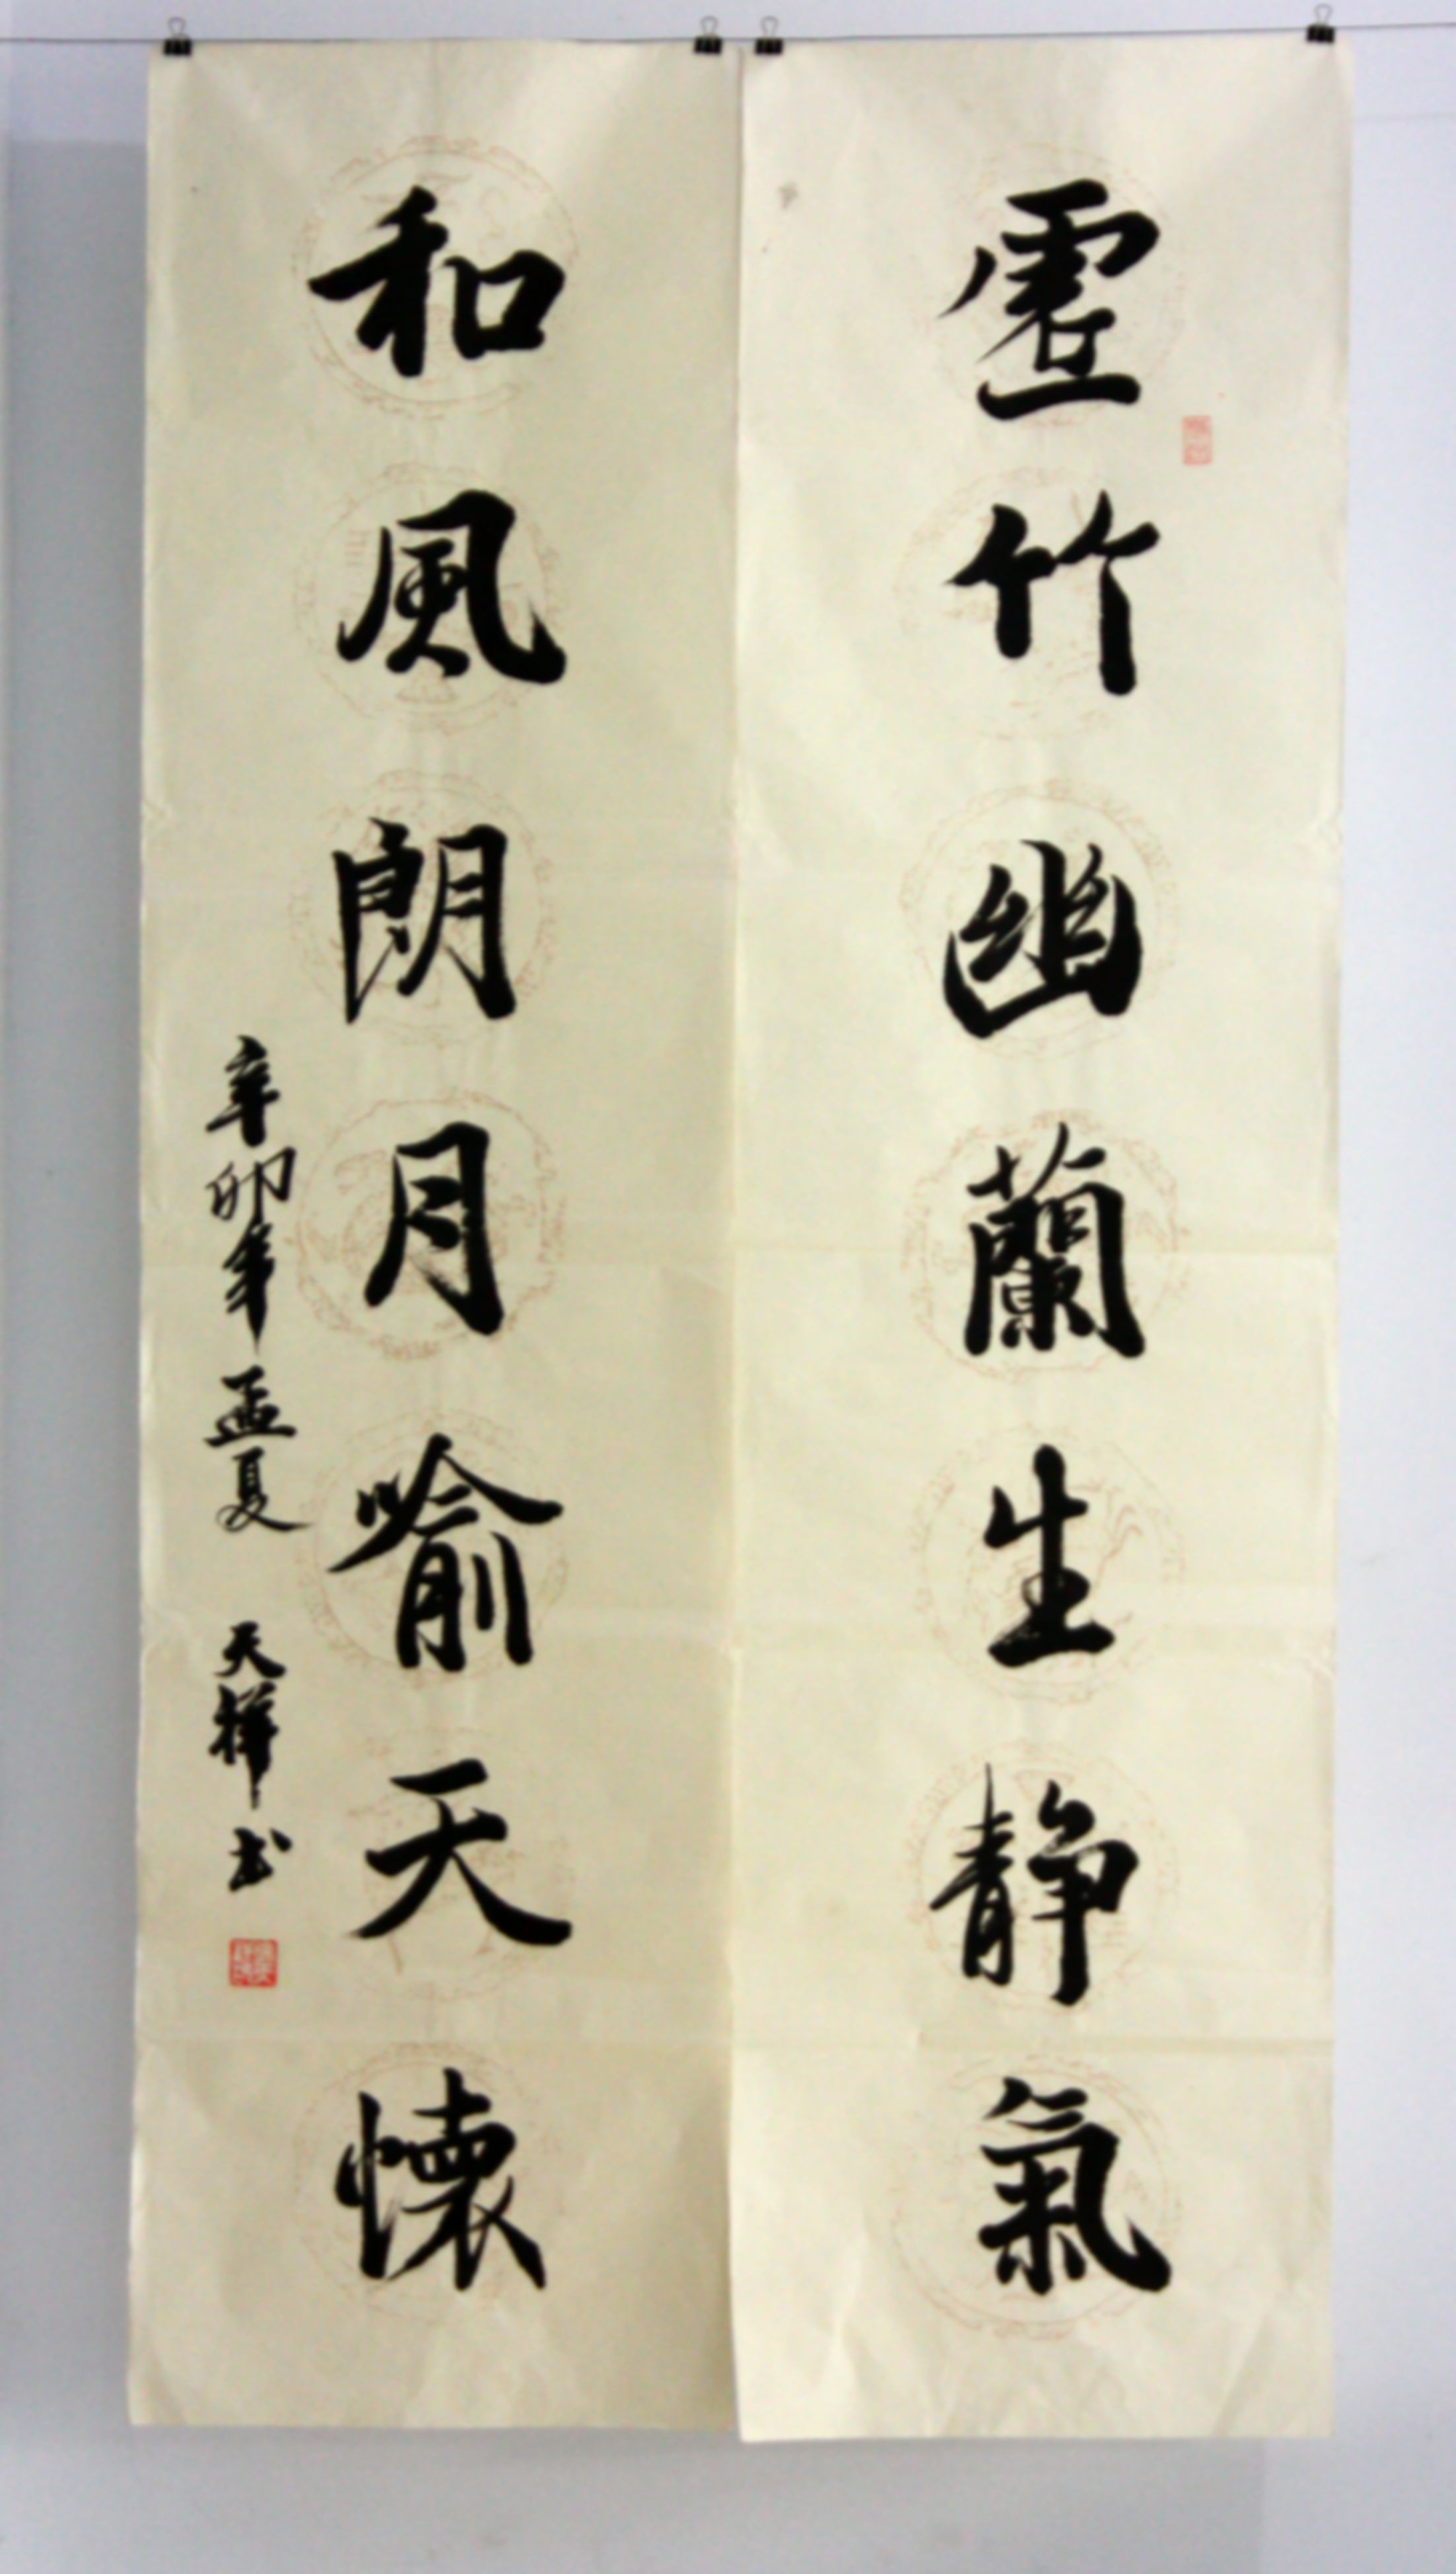 虛竹幽蘭生靜氣
和風朗月喻天懷
辛卯年孟夏 天祥书